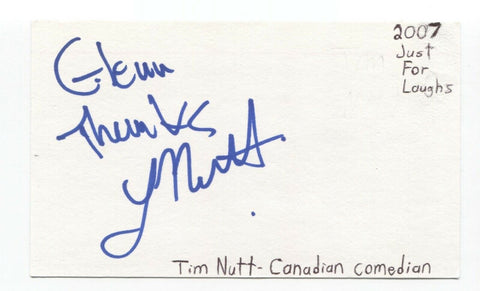 2007
Just
For
Laughs
Glenn
Thanks
T Nutt.
Tim Nutt- Canadian comedian